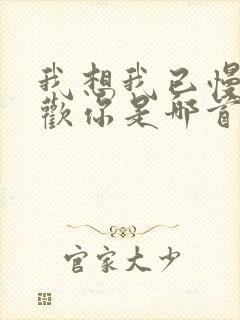 我想我已慢
歡你是那首
官家大少